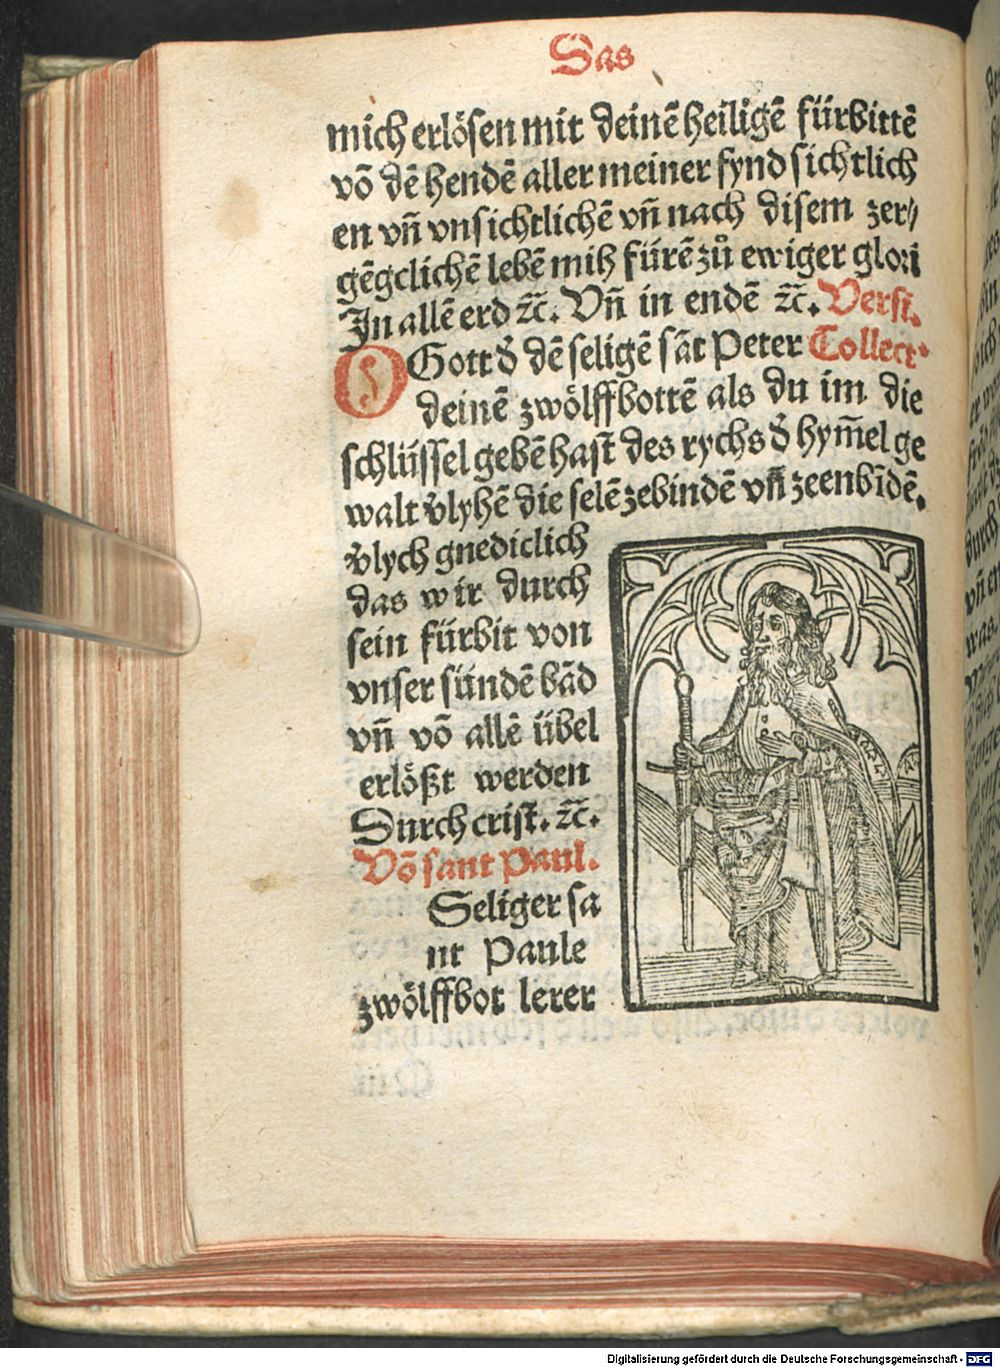 Das
mich erlösen mit deinē heiligē fürbittē
vō dē hendē aller meiner fynd sichtlich
en vñ vnsichtlichē vñ nach disem zer⸗
gēgclichē lebē mih fürē zů ewiger glori
In allē erd ⁊c̄. Vñ in endē ⁊c̄. Verß.
O Gott d̓ dē seligē sāt Peter Collect.
deinē zwölffbottē als du im die
schlüssel gebē hast des rychs d̓ hym̄el ge
walt v̓lyhē die selē zebindē vñ zeenbīdē.
v̓lych gnediclich
das wir durch
sein fürbit von
vnser sündē bād
vñ vō allē übel
erlößt werden
Durch crist. ⁊c̄.
Vō sant Paul.
Seliger sa
nt Paule
zwölffbot lerer
Digitalisierung gefördert durch die Deutsche Forschungsgemeinschaft - DFG